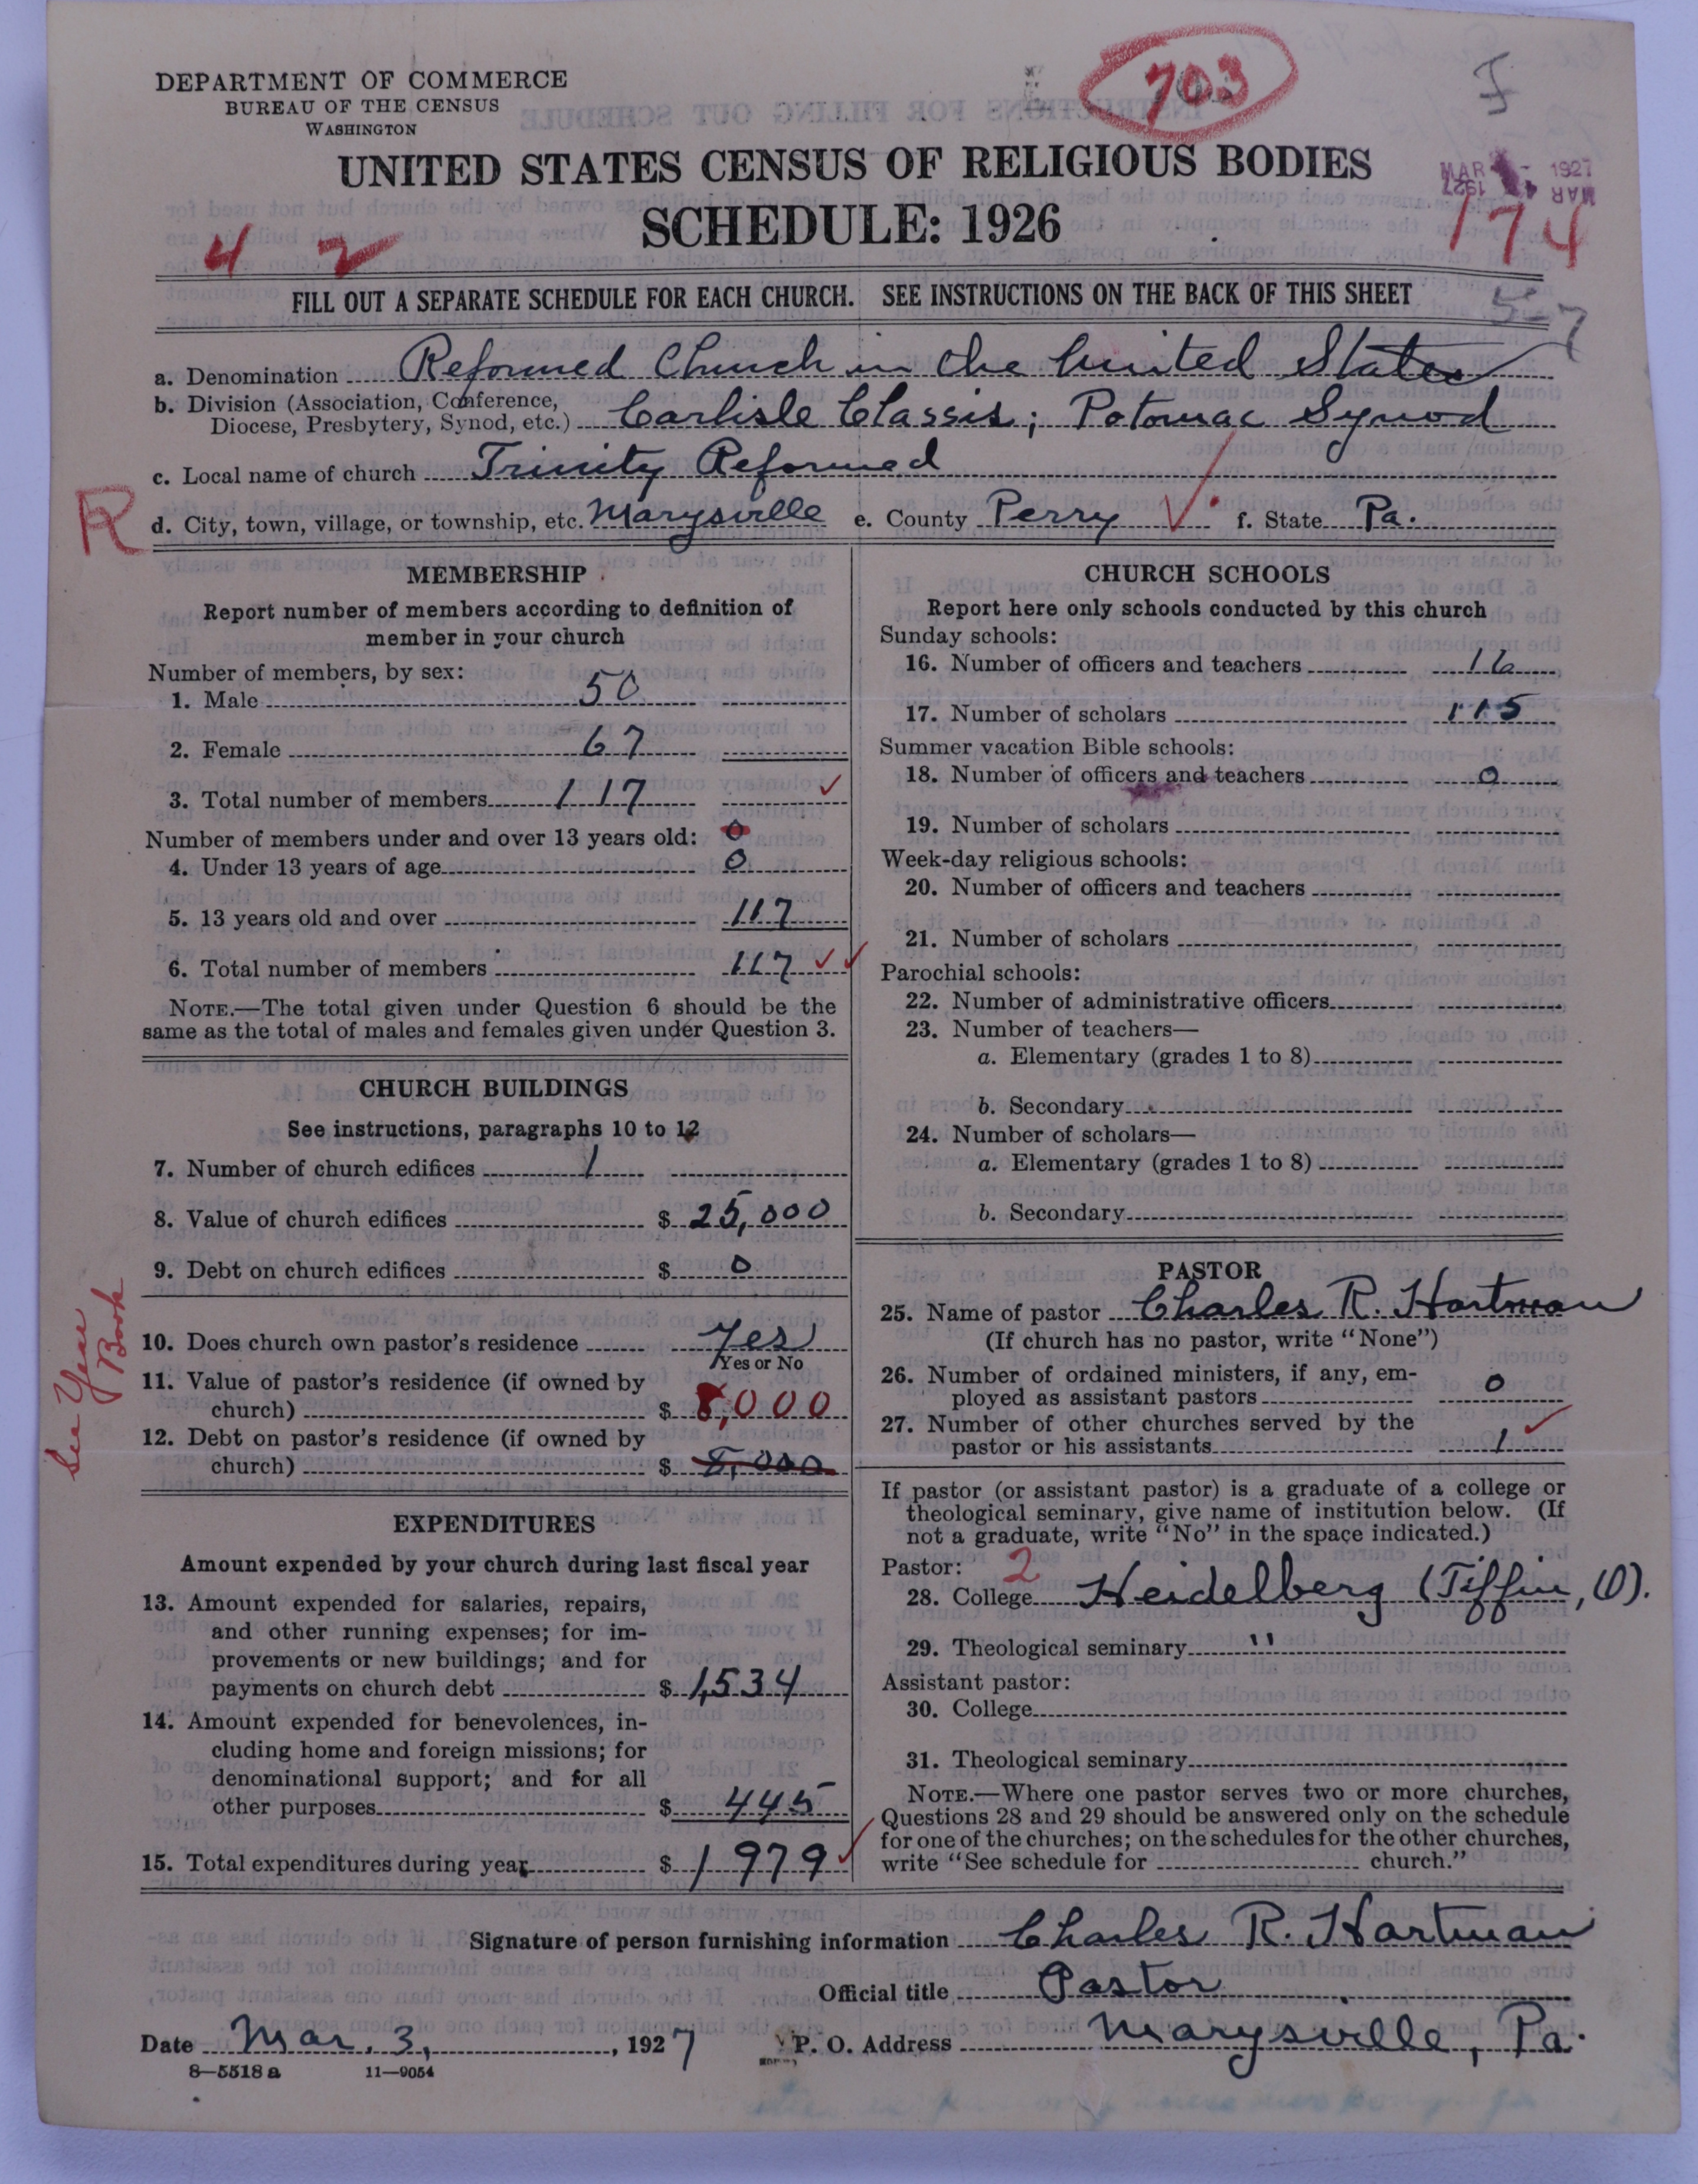 DEPARTMENT OF COMMERCE
BUREAU OF THE CENSUS
WASHINGTON
703
UNITED STATES CENSUS OF RELIGIOUS BODIES
SCHEDULE: 1926
MAR 1927
4 2
174
FILL OUT A SEPARATE SCHEDULE FOR EACH CHURCH. SEE INSTRUCTIONS ON THE BACK OF THIS SHEET
5-7
a. Denomination Reformed Church in the United States
b. Division (Association, Conference, Diocese, Presbytery, Synod, etc.) Carlisle Classis; Potomac Synod
c. Local name of church Trinity Reformed
R
d. City, town, village, or township, etc. Marysville e. County Perry f. State Pa.
MEMBERSHIP
Report number of members according to definition of
member in your church
Number of members, by sex:
1. Male 50
2. Female 67
3. Total number of members 117
Number of members under and over 13 years old: 0
4. Under 13 years of age 0
5. 13 years old and over 117
6. Total number of members 117
NOTE.—The total given under Question 6 should be the
same as the total of males and females given under Question 3.
CHURCH BUILDINGS
See instructions, paragraphs 10 to 12
7. Number of church edifices 1
8. Value of church edifices $ 25,000
9. Debt on church edifices $ 0
See Year Book
10. Does church own pastor's residence Yes
Yes or No
11. Value of pastor's residence (if owned by
church) $ 8,000
12. Debt on pastor's residence (if owned by
church) $ 8,000
EXPENDITURES
Amount expended by your church during last fiscal year
13. Amount expended for salaries, repairs,
and other running expenses; for im-
provements or new buildings; and for
payments on church debt $ 1,534
14. Amount expended for benevolences, in-
cluding home and foreign missions; for
denominational support; and for all
other purposes $ 445
15. Total expenditures during year $ 1979
CHURCH SCHOOLS
Report here only schools conducted by this church
Sunday schools:
16. Number of officers and teachers 16
17. Number of scholars 115
Summer vacation Bible schools:
18. Number of officers and teachers 0
19. Number of scholars
Week-day religious schools:
20. Number of officers and teachers
21. Number of scholars
Parochial schools:
22. Number of administrative officers
23. Number of teachers—
a. Elementary (grades 1 to 8)
b. Secondary
24. Number of scholars—
a. Elementary (grades 1 to 8)
b. Secondary
PASTOR
25. Name of pastor Charles R. Hartman
(If church has no pastor, write "None")
26. Number of ordained ministers, if any, em-
ployed as assistant pastors 0
27. Number of other churches served by the
pastor or his assistants 1
If pastor (or assistant pastor) is a graduate of a college or
theological seminary, give name of institution below. (If
not a graduate, write "No" in the space indicated.)
Pastor: 2
28. College Heidelberg (Tiffin, O).
29. Theological seminary "
Assistant pastor:
30. College
31. Theological seminary
NOTE.—Where one pastor serves two or more churches,
Questions 28 and 29 should be answered only on the schedule
for one of the churches; on the schedules for the other churches,
write "See schedule for church."
Signature of person furnishing information Charles R. Hartman
Official title Pastor
Date Mar. 3, 1927 P. O. Address Marysville, Pa.
8—5518 a 11—9054